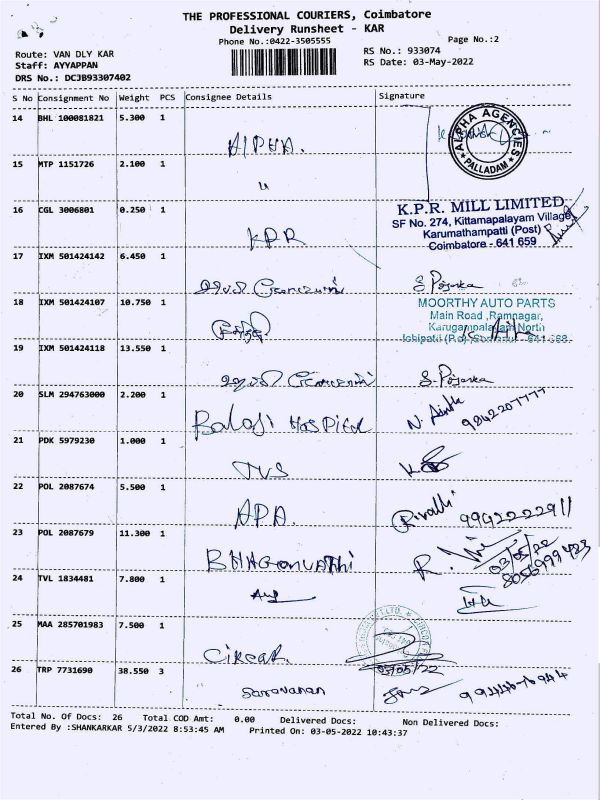 THE PROFESSIONAL COURIERS, Coimbatore
Delivery Runsheet - KAR
Phone No.:0422-3505555
Page No.:2
Route: VAN DLY KAR
Staff: AYYAPPAN
DRS No.: DCJB93307402
RS No.: 933074
RS Date: 03-May-2022
S No Consignment No Weight PCS Consignee Details Signature
14 BHL 100081821 5.300 1
AlPHA.
ALPHA AGENCIES
PALLADAM
15 MTP 1151726 2.100 1
16 CGL 3006801 0.250 1
KPR
K.P.R. MILL LIMITED
SF No. 274, Kittamapalayam Village
Karumathampatti (Post)
Coimbatore - 641 659
17 IXM 501424142 6.450 1
18 IXM 501424107 10.750 1
MOORTHY AUTO PARTS
Main Road ,Ramnagar,
Karugampalayam North
19 IXM 501424118 13.550 1
20 SLM 294763000 2.200 1
Balaji Hospital
9842207777
21 PDK 5979230 1.000 1
TVS
22 POL 2087674 5.500 1
APA.
9992222911
23 POL 2087679 11.300 1
BHAGAVATHI
03/05/22
24 TVL 1834481 7.800 1
25 MAA 285701983 7.500 1
Circar.
03/05/22
26 TRP 7731690 38.550 3
Saravanan
Total No. Of Docs: 26 Total COD Amt: 0.00 Delivered Docs: Non Delivered Docs:
Entered By :SHANKARKAR 5/3/2022 8:53:45 AM Printed On: 03-05-2022 10:43:37